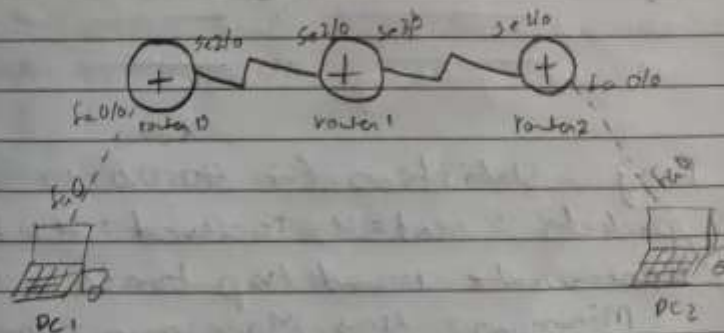 se2/0 se2/0 se3/0 se2/0
fa0/0 fa0/0
router0 router1 router2
fa0 fa0
PC1 PC2